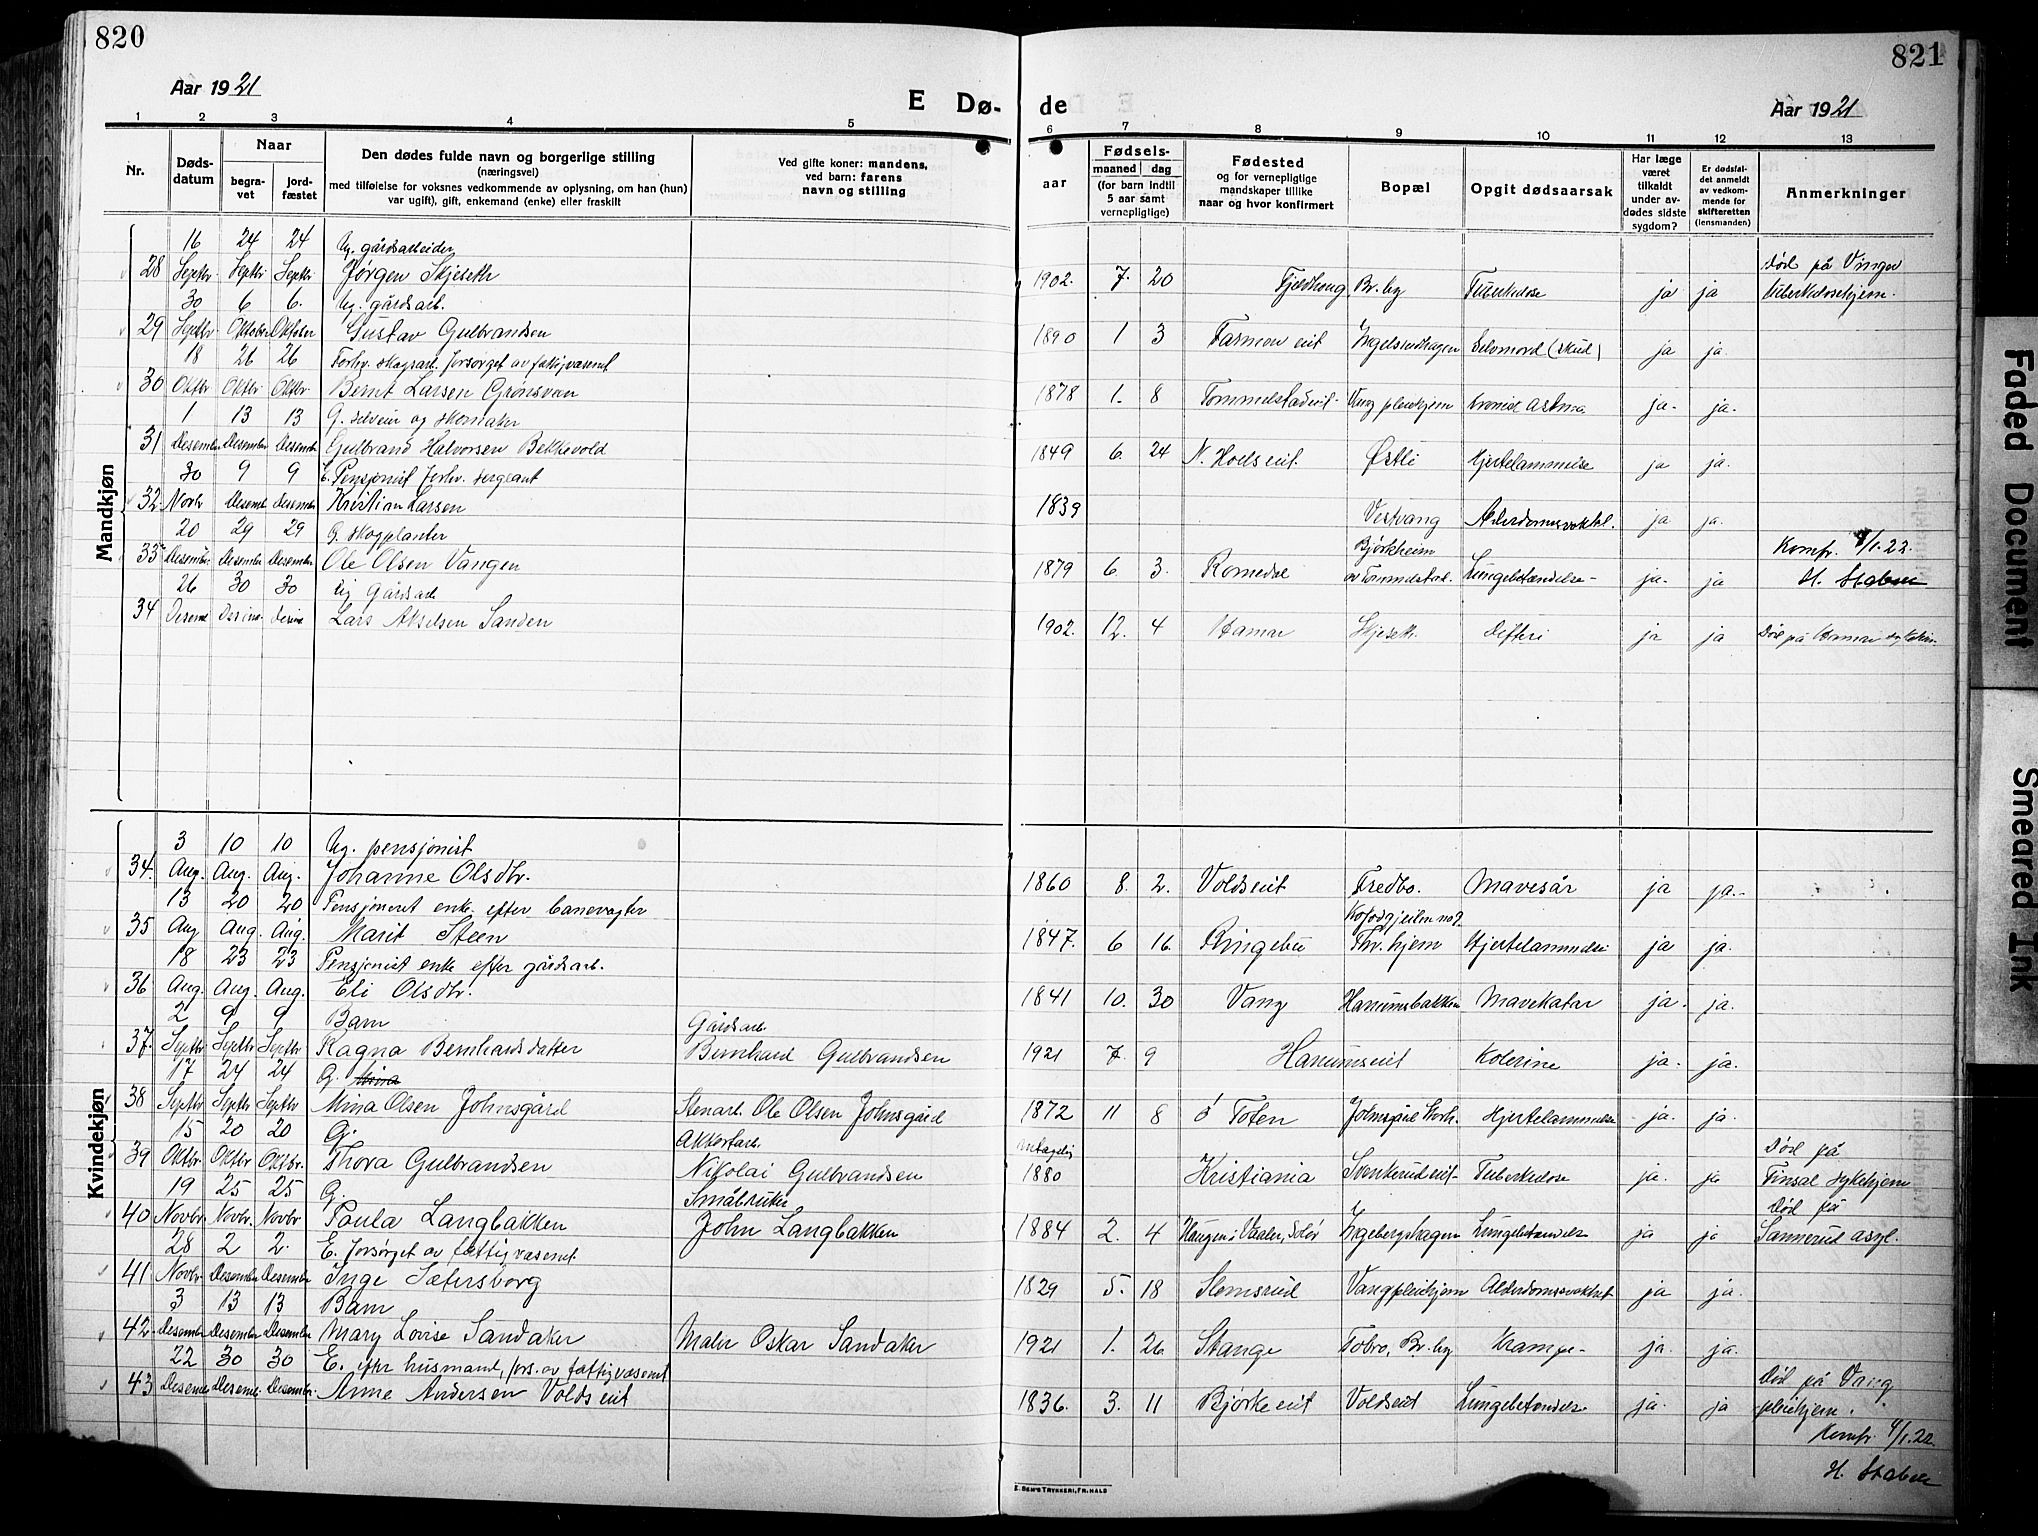 820
Aar 1921
E Dø-
1 2 3 4 5
Nr.
Døds-
datum
Naar
begra-
vet
jord-
fæstet
Den dødes fulde navn og borgerlige stilling
(næringsvei)
med tilføielse for voksnes vedkommende av oplysning, om han (hun)
var ugift), gift, enkemand (enke) eller fraskilt
Ved gifte koner: mandens,
ved barn: farens
navn og stilling
Mandkjøn
16 24 24 Ug. gårdsarbeider
28 Septbr. Septbr Septbr. Jørgen Skjeseth
30 6 6. Ug. gårdsarb.
29 Septbr. Oktober Oktober Gustav Gulbrandsen
18 26 26 Forhv. skogsarb. forsørget av fattigvæsenet
30 Oktbr Oktbr. Oktbr. Bernt Larsen Grønsveen
1 13 13 G. selveier og skomaker
31 Desember Desember Desember Gulbrand Halvorsen Bekkevold
30 9 9 E. Pensjonist forhv. sergeant
32 Novbr Desembr Desember Kristian Larsen
20 29 29 G. skogplanter
33 Desember Desember Desember Ole Olsen Vangen
26 30 30 Ug gårdsarb
34 Lars Akselsen Sanden
Kvindekjøn
3 10 10 Ug. pensjonist
34. Aug. Aug. Aug. Johanne Olsdtr.
13 20 20 Pensjoneret enke efter banevagter
35 Aug Aug. Aug. Marit Steen
18 23 23 Pensjonist enke efter gårdsarb.
36 Aug. Aug. Aug. Eli Olsdtr.
2 9 9 Barn Gårdsarb.
37. Septbr Septbr Septbr Ragna Bernhardsdatter Bernhard Gulbrandsen
17 24 24 G. Mina
38 Septbr Septbr Septbr Mina Olsen Johnsgård Stenarb. Ole Olsen Johnsgård
15 20 20 G. Akkordarb.
39 Oktbr. Oktbr Oktbr. Thora Gulbrandsen Nikolai Gulbrandsen
19 25 25 G. Småbruker
40 Novbr. Novbr. Novbr Paula Langbakken John Langbakken
28 2 2. E. forsørget av fattigvæsenet
41 Novbr. Desember Desember Inge Sætersborg
3 13 13 Barn
42. Desember Desember Desember Mary Lovise Sandaker Maler Oskar Sandaker
22 30 30 E. efter husmand, fors. av fattigvæsenet
43 Desembr Desem. Desembr. Anne Andersen Voldseiet
821
de
Aar 1921
6 7 8 9 10 11 12 13
aar
Fødsels-
maaned dag
(for barn indtil
5 aar samt
vernepligtige)
Fødested
og for vernepligtige
mandskaper tillike
naar og hvor konfirmert
Bopæl
Opgit dødsaarsak
Har læge
været
tilkaldt
under av-
dødes sidste
sygdom?
Er dødsfal-
det anmeldt
av vedkom-
mende for
skifteretten
(lensmanden)
Anmerkninger
Død på Vinger
1902. 7. 20 Fjeldheug, Br. by Tuberkulose ja ja tuberkulosehjem.
1890 1 3 Farmen eiet Ingelsrudhagen Selvmord (skud) ja ja.
1878 1. 8 Tommelstadeiet. Vang pleiehjem kronisk astma ja. ja.
1849 6. 24 N. Hols eiet. Østli Hjertelammelse ja ja.
1839 Vestvang Alderdomssvakhet. ja ja.
Bjørkheim Komfr. 4/1. 22.
1879 6 3. Romedal av Tommelstad. Lungebetændelse- ja. ja H. Stabell
1902. 12. 4 Hamar Skjeseth. Difteri ja ja Død på Hamar sykehus.
1860 8. 2. Voldseiet Fredbo. Mavesår ja ja.
1847. 6 16. Ringebu Thr. hjem Hjertelammelse ja ja.
1841 10. 30 Vang Hanumsbakken Mavekatar ja. ja.
1921 7. 9 Hanumseiet Kolerine ja. ja.
1872 11 8 Ø Toten Johnsgård Hjertelammelse ja. ja.
antagelig Død på
1880 Kristiania Svenkerudeiet- Tuberkulose ja. ja Finsal sykehjem
Død på
1884 2. 4 Haugen i Vaaler, Solør Ingeberghagen Lungebetændelse ja ja Sannerud asyl.
1829 5. 18 Slemsrud Vangpleiehjem Alderdomssvakhet ja ja.
1921 1. 26 Stange Tobro, Br. by Krampe- ja. ja.
Død på Vang
1836. 3. 11 Bjørke eiet Voldseiet Lungebetændelse ja. ja pleiehjem.
Komfr. 4/1. 22
H. Stabell
E. SEM'S TRYKKERI, FR.HALD
Faded Document
Smeared Ink